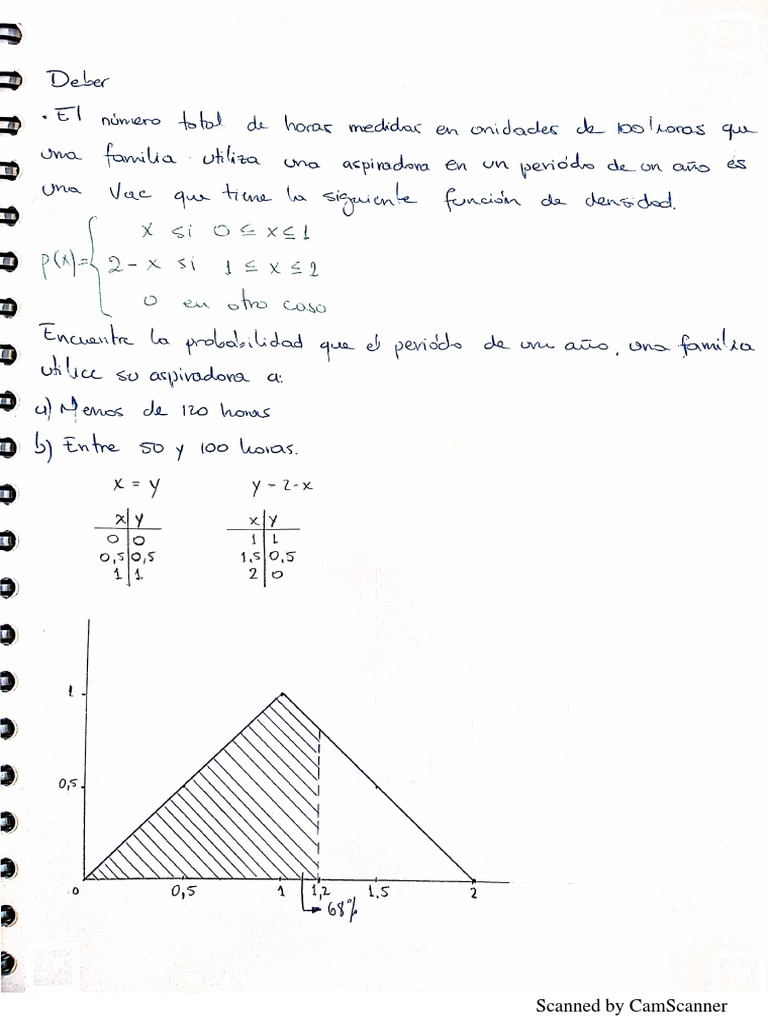 Deber
· El número total de horas medidas en unidades de 100 horas que
una familia utiliza una aspiradora en un periódo de un año es
una Vac que tiene la siguiente función de densidad.
p(x)= x si 0 ≤ x ≤ 1
2 - x si 1 ≤ x ≤ 2
0 en otro caso
Encuentre la probabilidad que el periódo de un año, una familia
utilice su aspiradora a:
a) Menos de 120 horas
b) Entre 50 y 100 horas.
x = y y - 2 - x
x y x y
0 0 1 1
0,5 0,5 1,5 0,5
1 1 2 0
1
0,5
0 0,5 1 1,2 1,5 2
68%
Scanned by CamScanner